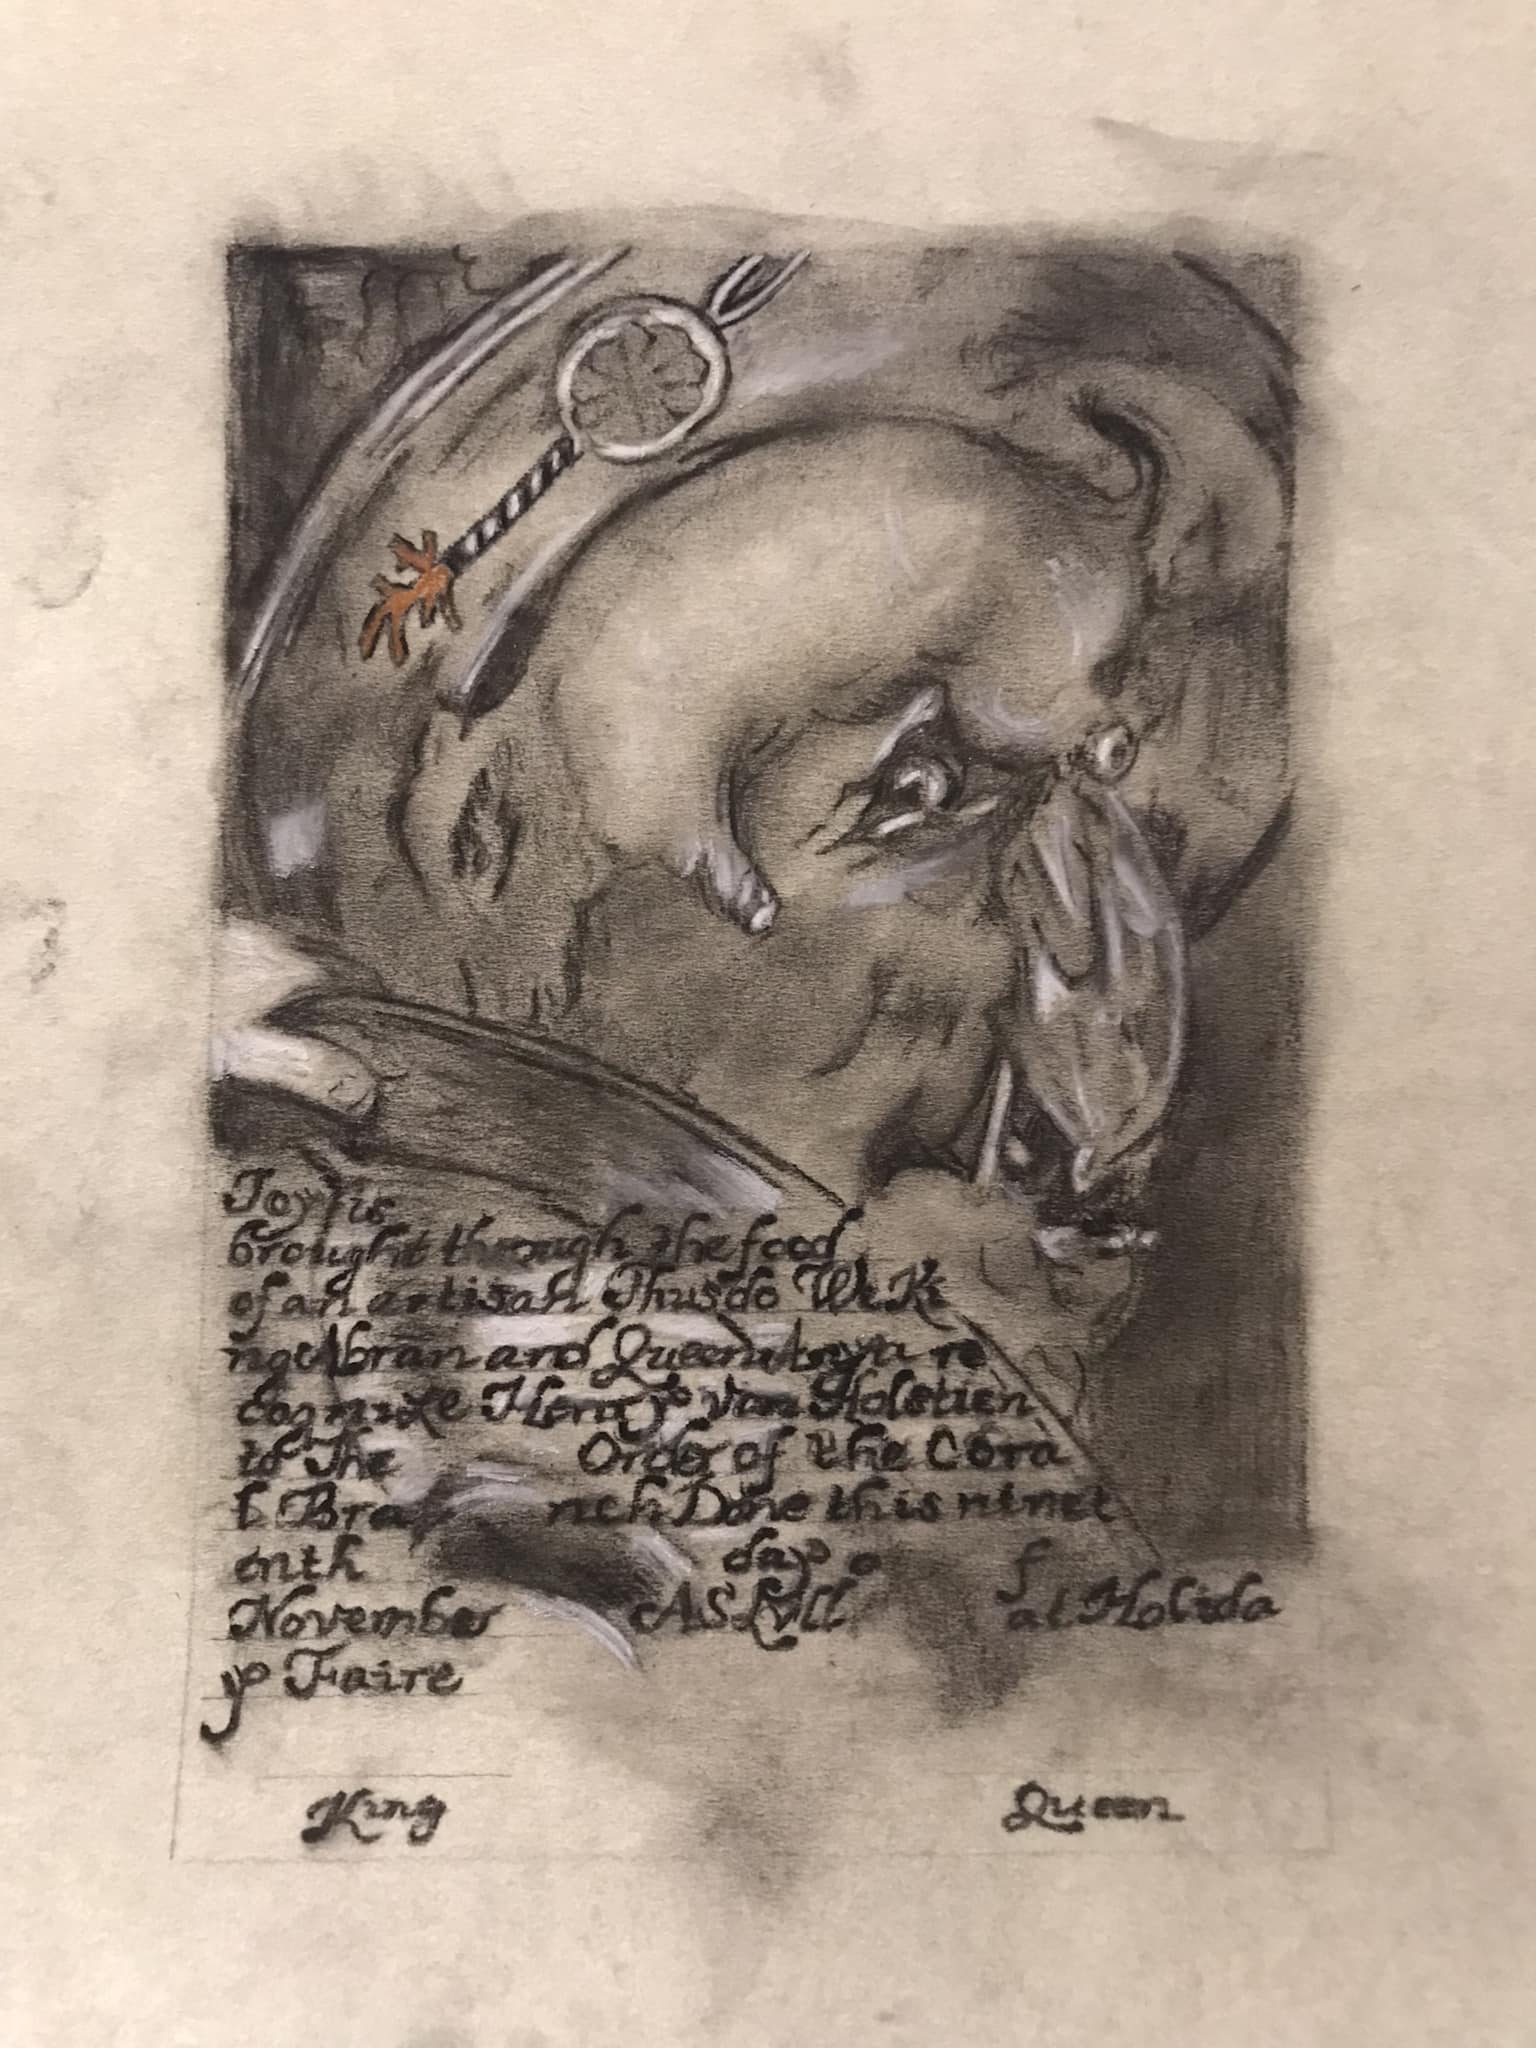 Joy is
brought through the food
of an artisan Thus do We Ki
ng Abran and Queen Anya re
cognize Henry Van Holstien
to The Order of the Cora
l Bra nch Done this ninet
enth day o f
November AS LVII at Holida
y Faire
King Queen